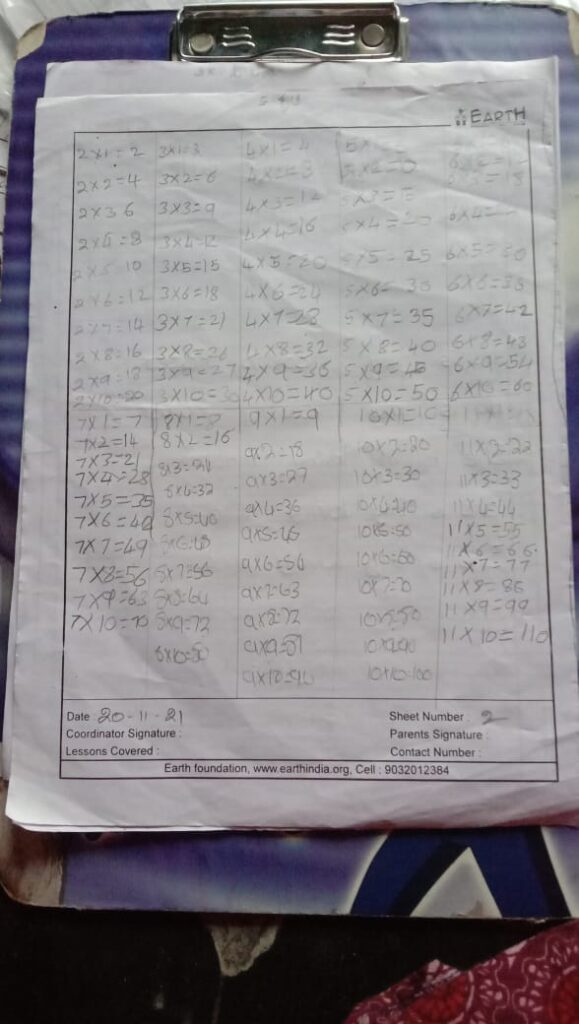 EARTH
2x1=2
2x2=4
2x3 6
2x4=8
2x5 10
2x6=12
2x7=14
2x8=16
2x9=18
2x10=20
3x1=3
3x2=6
3x3=9
3x4=12
3x5=15
3x6=18
3x7=21
3x9=27
3x10=30
4x1=4
4x3=12
4x4=16
4x5=20
4x6=24
4x7=28
4x8=32
4x9=36
4x10=40
5x5=25
5x6=30
5x7=35
5x8=40
5x9=45
5x10=50
6x4=
6x5=30
6x6=36
6x7=42
6x8=48
6x9=54
6x10=60
7x1=7
7x2=14
7x3=21
7x4=28
7x5=35
7x6=42
7x7=49
7x8=56
7x9=63
7x10=70
8x1=8
8x2=16
8x3=24
8x4=32
8x5=40
8x6=48
8x7=56
8x8=64
8x9=72
8x10=80
9x1=9
9x2=18
9x3=27
9x4=36
9x5=45
9x6=54
9x7=63
9x8=72
9x9=81
9x10=90
10x1=10
10x2=20
10x3=30
10x4=40
10x5=50
10x6=60
10x7=70
10x8=80
10x9=90
10x10=100
11x2=22
11x3=33
11x4=44
11x5=55
11x6=66
11x7=77
11x8=86
11x9=99
11x10=110
Date 20-11-21 Sheet Number : 2
Coordinator Signature : Parents Signature :
Lessons Covered : Contact Number :
Earth foundation, www.earthindia.org, Cell : 9032012384